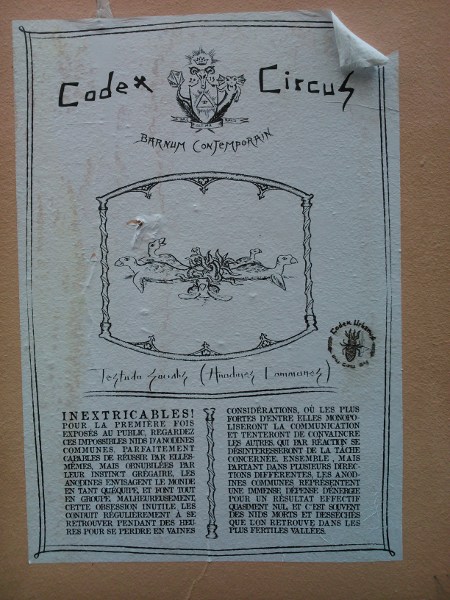 Codex Circus
BARNUM CONTEMPORAIN
Testudo Socialis (Anodines Communes)
Codex Urbanus
INEXTRICABLES!
POUR LA PREMIÈRE FOIS
EXPOSÉS AU PUBLIC, REGARDEZ
CES IMPOSSIBLES NIDS D'ANODINES
COMMUNES, PARFAITEMENT
CAPABLES DE RÉUSSIR PAR ELLES-
MÊMES, MAIS OBNUBILÉES PAR
LEUR INSTINCT GRÉGAIRE, LES
ANODINES ENVISAGENT LE MONDE
EN TANT QU'ÉQUIPE, ET FONT TOUT
EN GROUPE. MALHEUREUSEMENT,
CETTE OBSESSION INUTILE LES
CONDUIT RÉGULIÈREMENT À SE
RETROUVER PENDANT DES HEU-
RES POUR SE PERDRE EN VAINES
CONSIDÉRATIONS, OÙ LES PLUS
FORTES D'ENTRE ELLES MONOPO-
LISERONT LA COMMUNICATION
ET TENTERONT DE CONVAINCRE
LES AUTRES, QUI PAR RÉACTION SE
DÉSINTÉRESSERONT DE LA TÂCHE
CONCERNÉE. ENSEMBLE, MAIS
PARTANT DANS PLUSIEURS DIREC-
TIONS DIFFÉRENTES, LES ANOD-
INES COMMUNES REPRÉSENTENT
UNE IMMENSE DÉPENSE D'ÉNERGIE
POUR UN RÉSULTAT EFFECTIF
QUASIMENT NUL, ET C'EST SOUVENT
DES NIDS MORTS ET DESSÉCHÉS
QUE L'ON RETROUVE DANS LES
PLUS FERTILES VALLÉES.